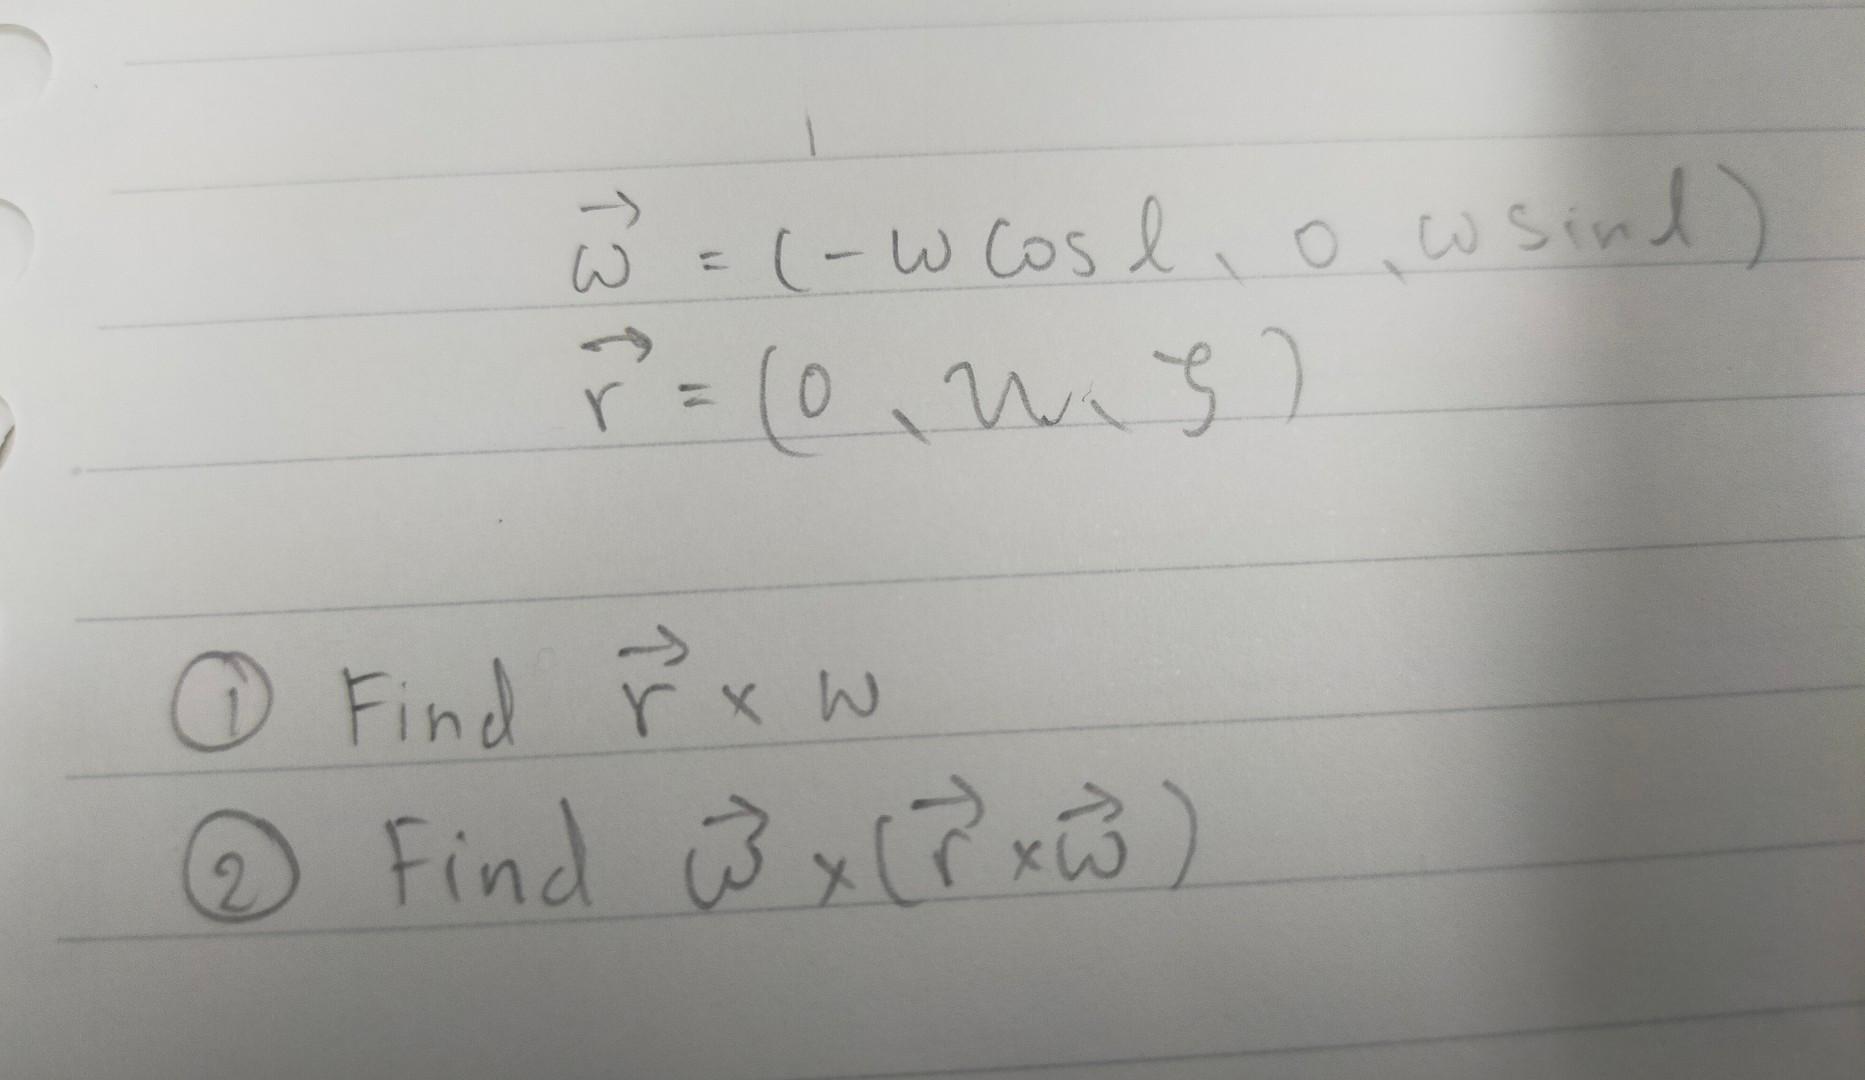 ω⃗ = (-ω cos l、0、ω sin l)
r⃗ = (0、η、ζ)
① Find r⃗ × ω
② Find ω⃗ × (r⃗ × ω⃗)